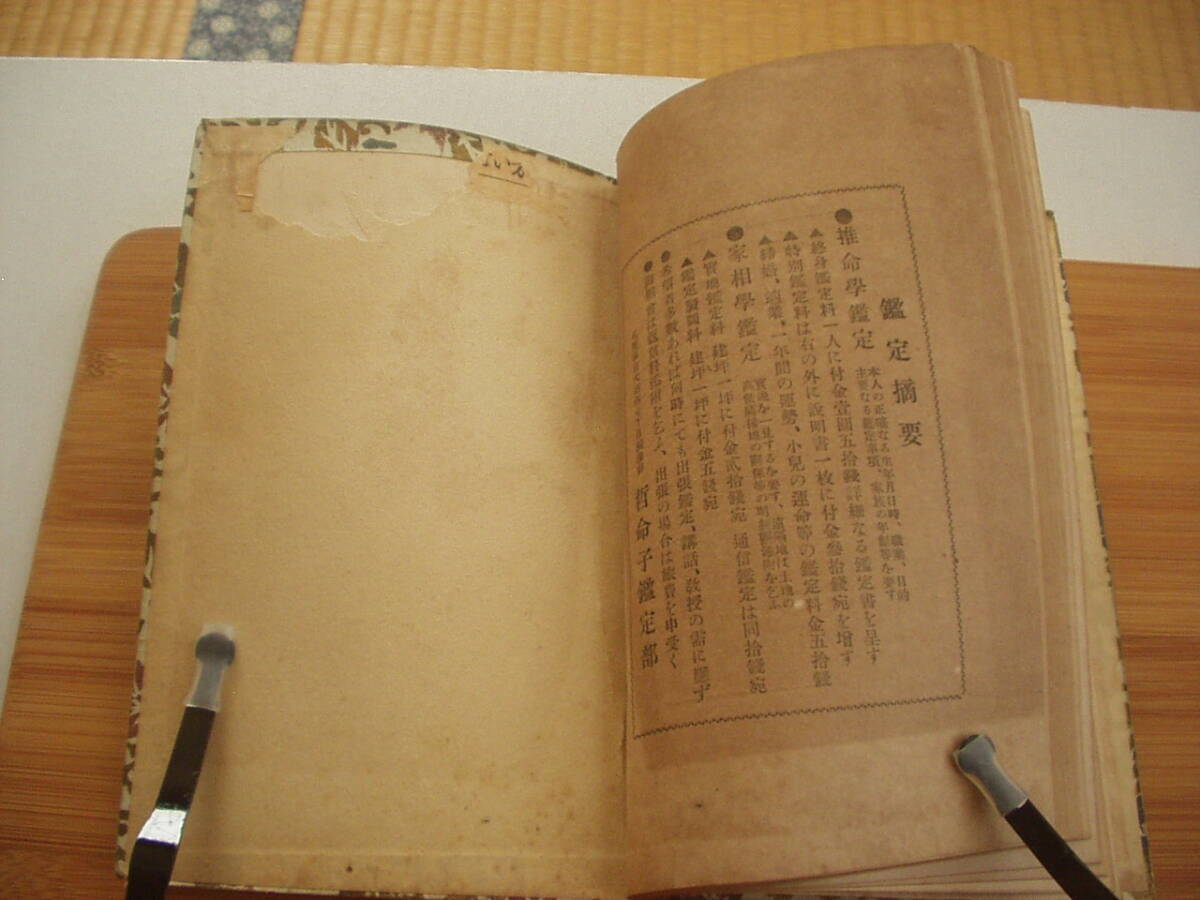 鑑定摘要
●推命學鑑定
本人の正確なる生年月日時、職業、目的
主要なる鑑定事項、家族の年齡等を要す
▲終身鑑定料一人に付金壹圓五拾錢詳細なる鑑定書を呈す
▲特別鑑定料は右の外に說明書一枚に付金參拾錢宛を增す
▲結婚、適業、一年間の運勢、小兒の運命等の鑑定料金五拾錢
●家相學鑑定
實地を一見するを要す、遠隔地は土地の
▲實地鑑定料 建坪一坪に付金貳拾錢宛 通信鑑定は同拾錢宛
▲鑑定製圖料 建坪一坪に付金五錢宛
●希望者多數あれば何時にても出張鑑定、講話、敎授の需に應ず
●御照會は返信料添附を乞ふ、出張の場合は旅費を申受く
哲命子鑑定部